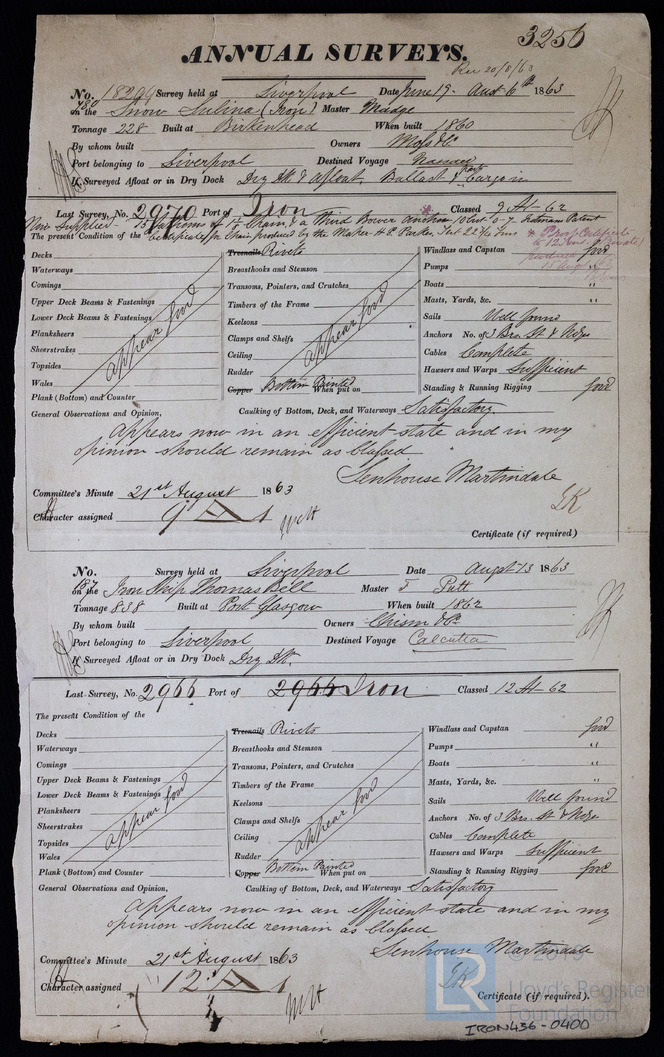 3256
ANNUAL SURVEYS.
Rec 20/8/63
No. 18299 Survey held at Liverpool Date June 19 - Augt 6th 1863
780 on the Snow Sulina (Iron) Master Madge
Tonnage 228 Built at Birkenhead When built 1860
By whom built Owners Moss &Co
Port belonging to Liverpool Destined Voyage
If Surveyed Afloat or in Dry Dock Dry Dk & Afloat, Ballast & part Cargo in
Last Survey, No. 2970 Port of Iron Classed 9 A1- 62
Now Supplied - 15 Fathoms of Chain & a Third Bower Anchor 10 Cwt 0 - 7 Rotman Patent
The present Condition of the Certificate for Chain produced by the Maker H P Parkes Test 22 Tons & Proof Certificate
Decks Treenails Rivets Windlass and Capstan good
Waterways Breasthooks and Stemson Pumps "
Comings Transoms, Pointers, and Crutches Boats "
Upper Deck Beams & Fastenings Timbers of the Frame Masts, Yards, &c. "
Lower Deck Beams & Fastenings Keelsons Sails Well found
Planksheers Clamps and Shelfs Anchors No. of 3 Brs St & Kedge
Sheerstrakes Ceiling Cables Complete
Topsides Rudder Hawsers and Warps Sufficient
Wales Copper Bottom Painted When put on Standing & Running Rigging good
appear good appear good
Plank (Bottom) and Counter
General Observations and Opinion, Caulking of Bottom, Deck, and Waterways Satisfactory
Appears now in an efficient state and in my
opinion should remain as Classed
Senhouse Martindale
Committee's Minute 21st August 1863
Character assigned 9 A 1
Certificate (if required)
No. Survey held at Liverpool Date Augst 13 1863
187 on the Iron Ship Thomas Bell Master T Putt
Tonnage 838 Built at Port Glasgow When built 1862
By whom built Owners Chism &Co
Port belonging to Liverpool Destined Voyage Calcutta
If Surveyed Afloat or in Dry Dock Dry Dk.
Last Survey, No. 2966 Port of 2966 Iron Classed 12 A1- 62
The present Condition of the
Decks Treenails Rivets Windlass and Capstan good
Waterways Breasthooks and Stemson Pumps "
Comings Transoms, Pointers, and Crutches Boats "
Upper Deck Beams & Fastenings Timbers of the Frame Masts, Yards, &c. "
Lower Deck Beams & Fastenings Keelsons Sails Well found
Planksheers Clamps and Shelfs Anchors No. of 3 Brs St & Kedge
Sheerstrakes Ceiling Cables Complete
Topsides Rudder Hawsers and Warps Sufficient
Wales Copper Bottom Painted When put on Standing & Running Rigging good
appear good appear good
Plank (Bottom) and Counter
General Observations and Opinion, Caulking of Bottom, Deck, and Waterways Satisfactory
Appears now in an efficient state and in my
opinion should remain as Classed
Senhouse Martindale
Committee's Minute 21st August 1863
Character assigned 12 A 1
Certificate (if required).
LR
Lloyd's Register
Foundation
IRON436-0400